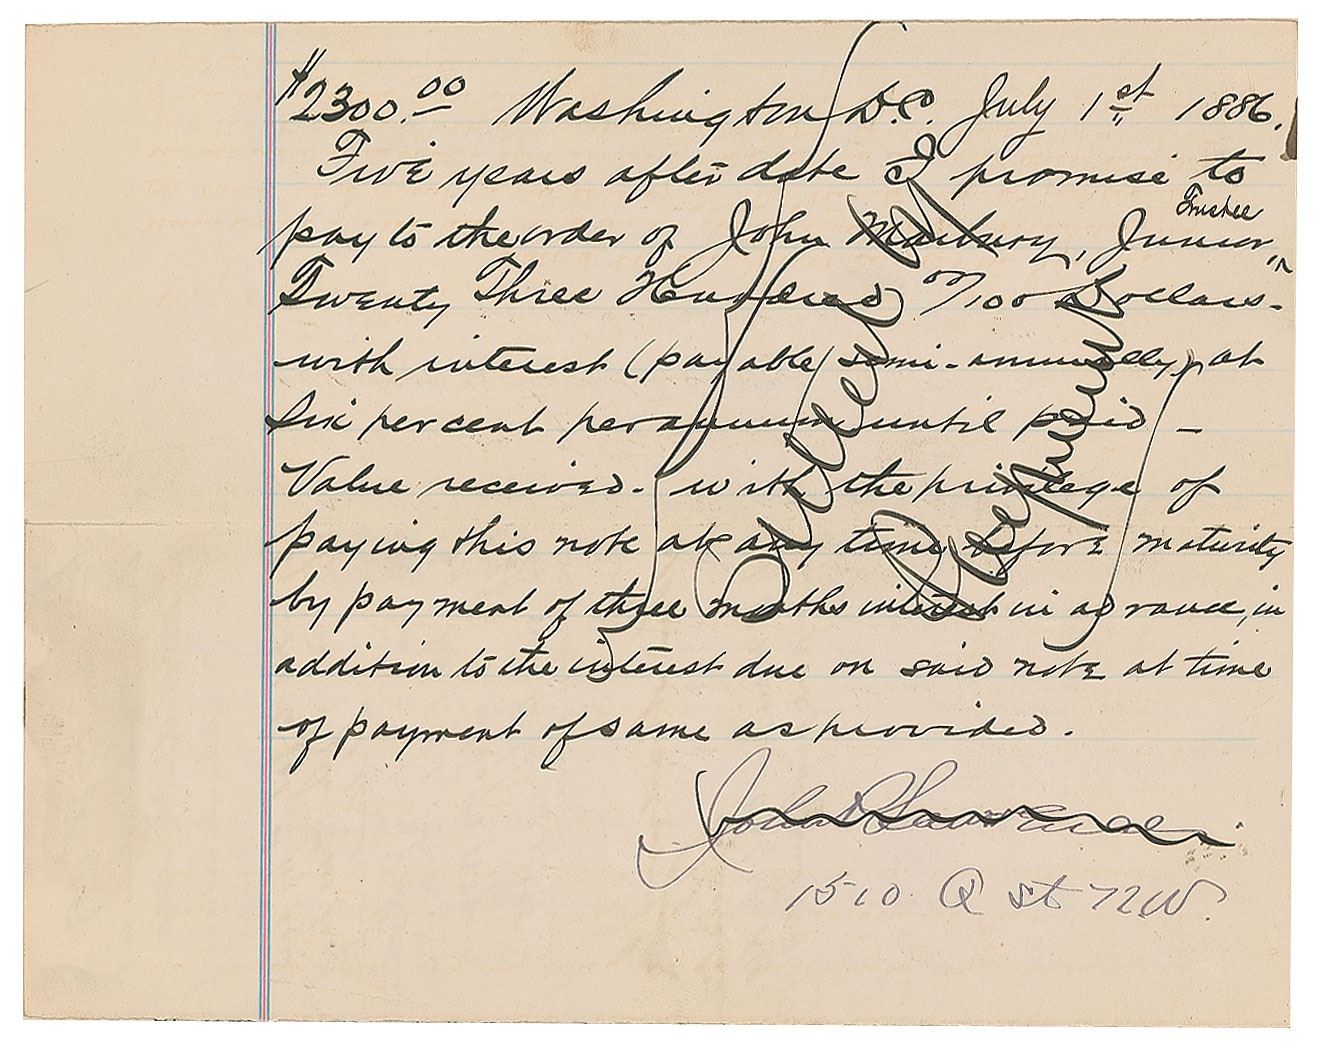 $2300.00 Washington D.C. July 1st 1886.
Five years after date I promise to
pay to the order of John Marbury, Junior, Trustee
Twenty Three Hundred 00/100 Dollars-
with interest (payable semi-annually) at
Six per cent per annum until paid -
Value received - with the privilege of
paying this note at any time before maturity
by payment of three months interest in advance, in
addition to the interest due on said note at time
of payment of same as provided.
John
1510 Q st NW.